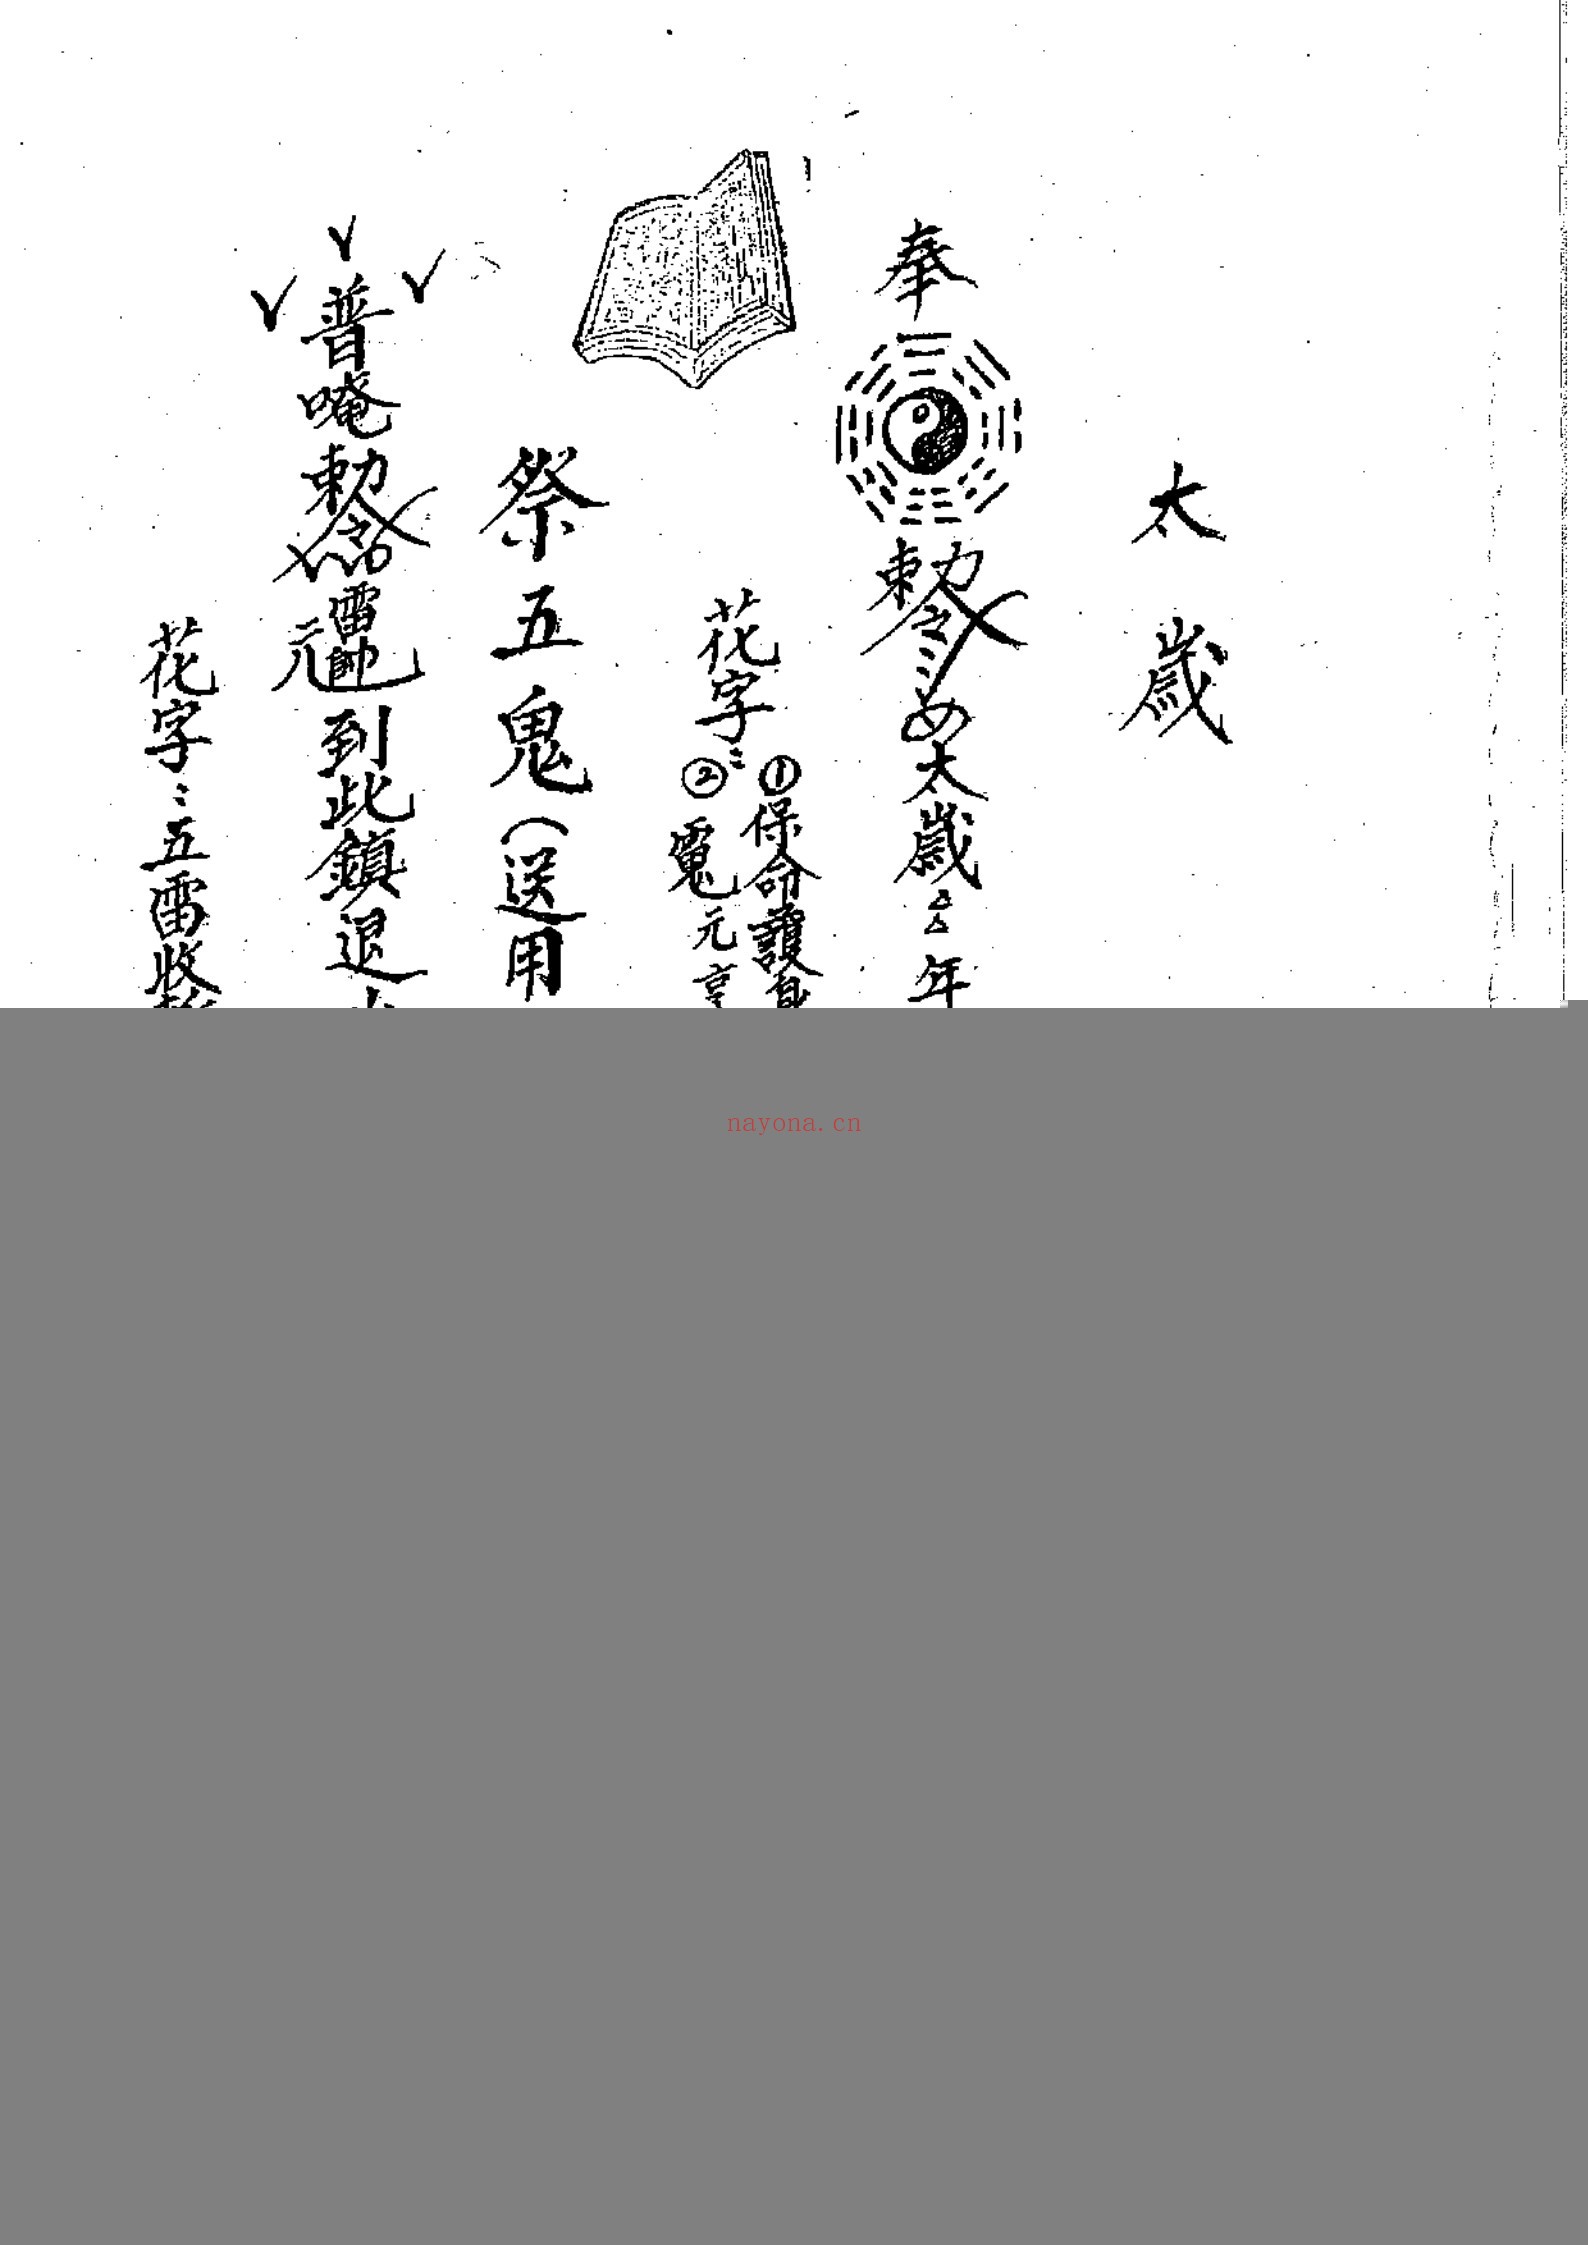 太歲
奉
勅令太歲△△年
花字：
①保命護身
②元亨
祭五鬼（送用
普唵勅令雷元帥到此鎮退
花字：五雷收
nayona.cn